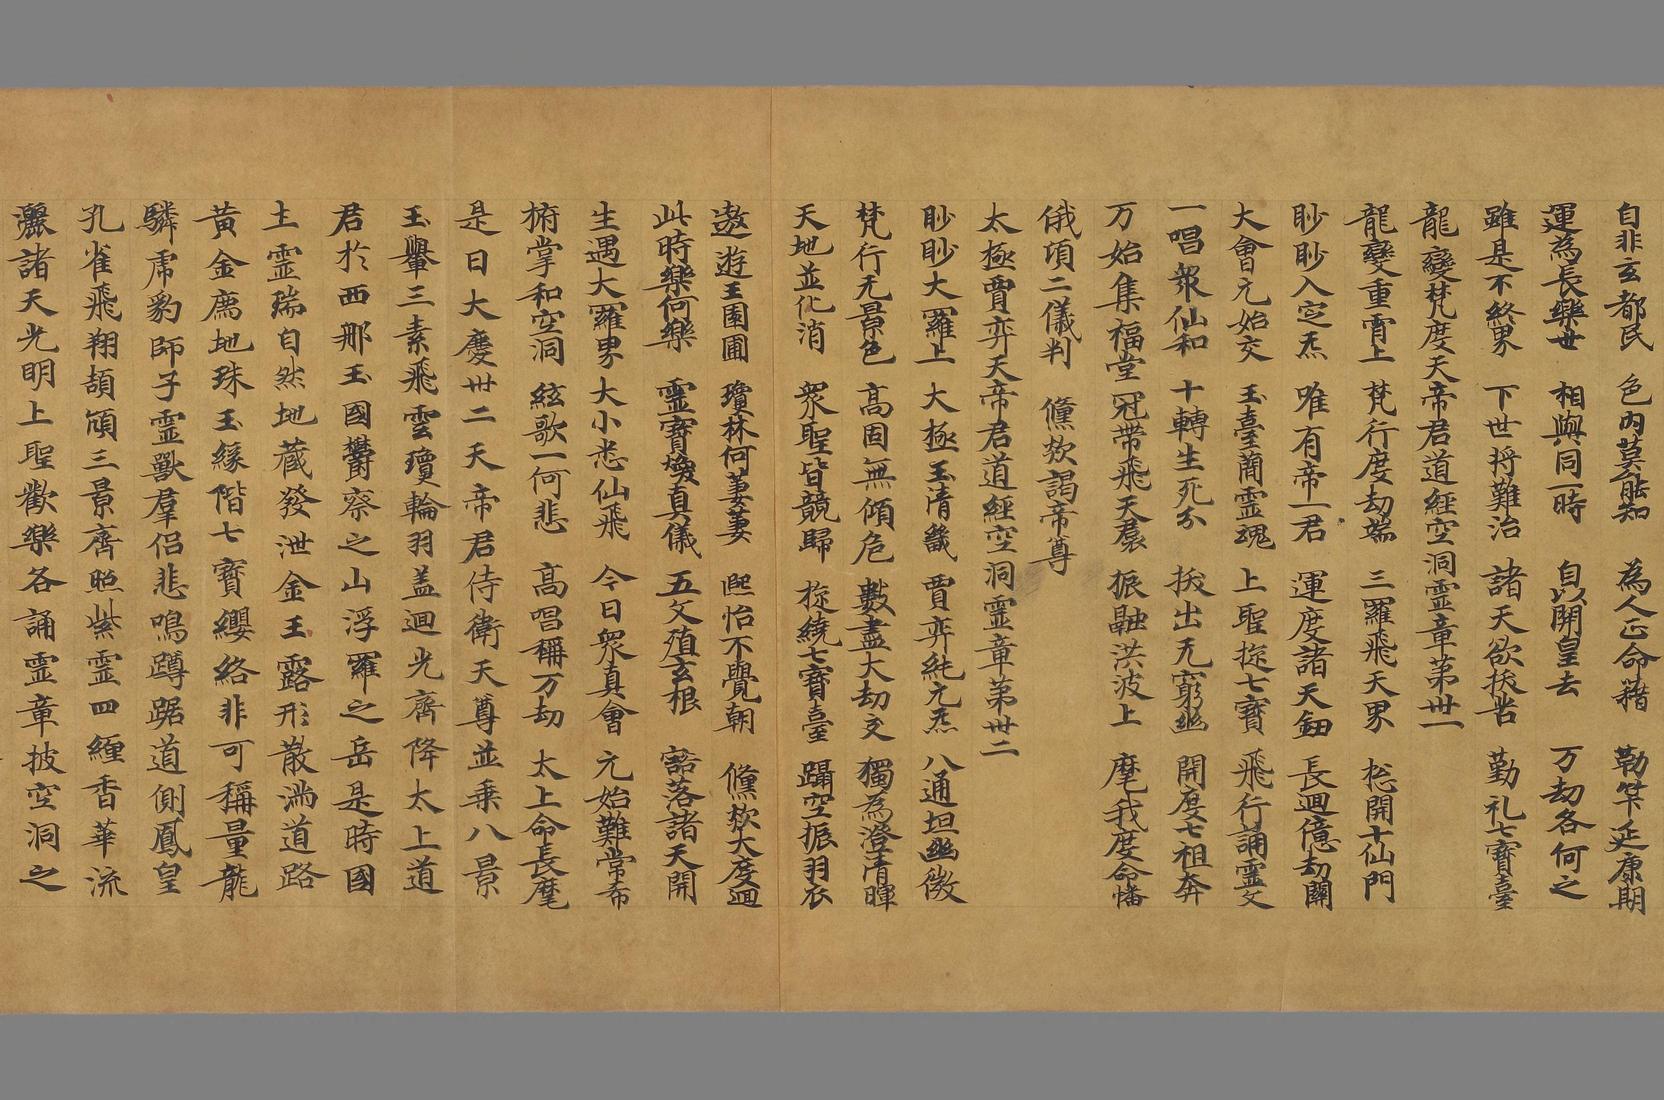 自非玄都民 色內莫能知 為人正命籍 勒筭延康期
運為長樂世 相與同一時 自以開皇去 万劫各何之
雖是不終界 下世將難治 諸天欲拔苦 勤礼七寶臺
龍變梵度天帝君道經空洞靈章第卅一
龍變重霄上 梵行度劫端 三羅飛天界 忩開十仙門
眇眇入空炁 唯有帝一君 運度諸天鈕 長迴億劫關
大會元始交 玉臺蘭靈魂 上聖旋七寶 飛行誦靈文
一唱眾仙和 十轉生死分 拔出无窮幽 開度七祖奔
万始集福堂 冠帶飛天裙 振融洪波上 麾我度命幡
俄頃二儀判 儵欻謁帝尊
太極賈弈天帝君道經空洞靈章第卅二
眇眇大羅上 大極玉清畿 賈弈純元炁 八通坦幽微
梵行无景色 高固無傾危 數盡大劫交 獨為澄清暉
天地並化消 衆聖皆競歸 旋繞七寶臺 躡空振羽衣
遨遊玉園圃 瓊林何萋萋 熙怡不覺朝 儵欻大度迴
此時樂何樂 靈寶煥真儀 五文殖玄根 諮落諸天開
生遇大羅界 大小悉仙飛 今日衆真會 元始難常希
俯掌和空洞 絃歌一何悲 高唱稱万劫 太上命長麾
是日大慶卅二天帝君侍衛天尊並乘八景
玉轝三素飛雲瓊輪羽盖迴光齊降太上道
君於西那玉國欝察之山浮羅之岳是時國
土靈瑞自然地藏發泄金玉露形散滿道路
黃金廌地珠玉緣階七寶纓絡非可稱量龍
驎虎豹師子靈獸羣侶悲鳴蹲踞道側鳳皇
孔雀飛翔頡頏三景齊照紫靈四纏香華流
灑諸天光明上聖歡樂各誦靈章披空洞之